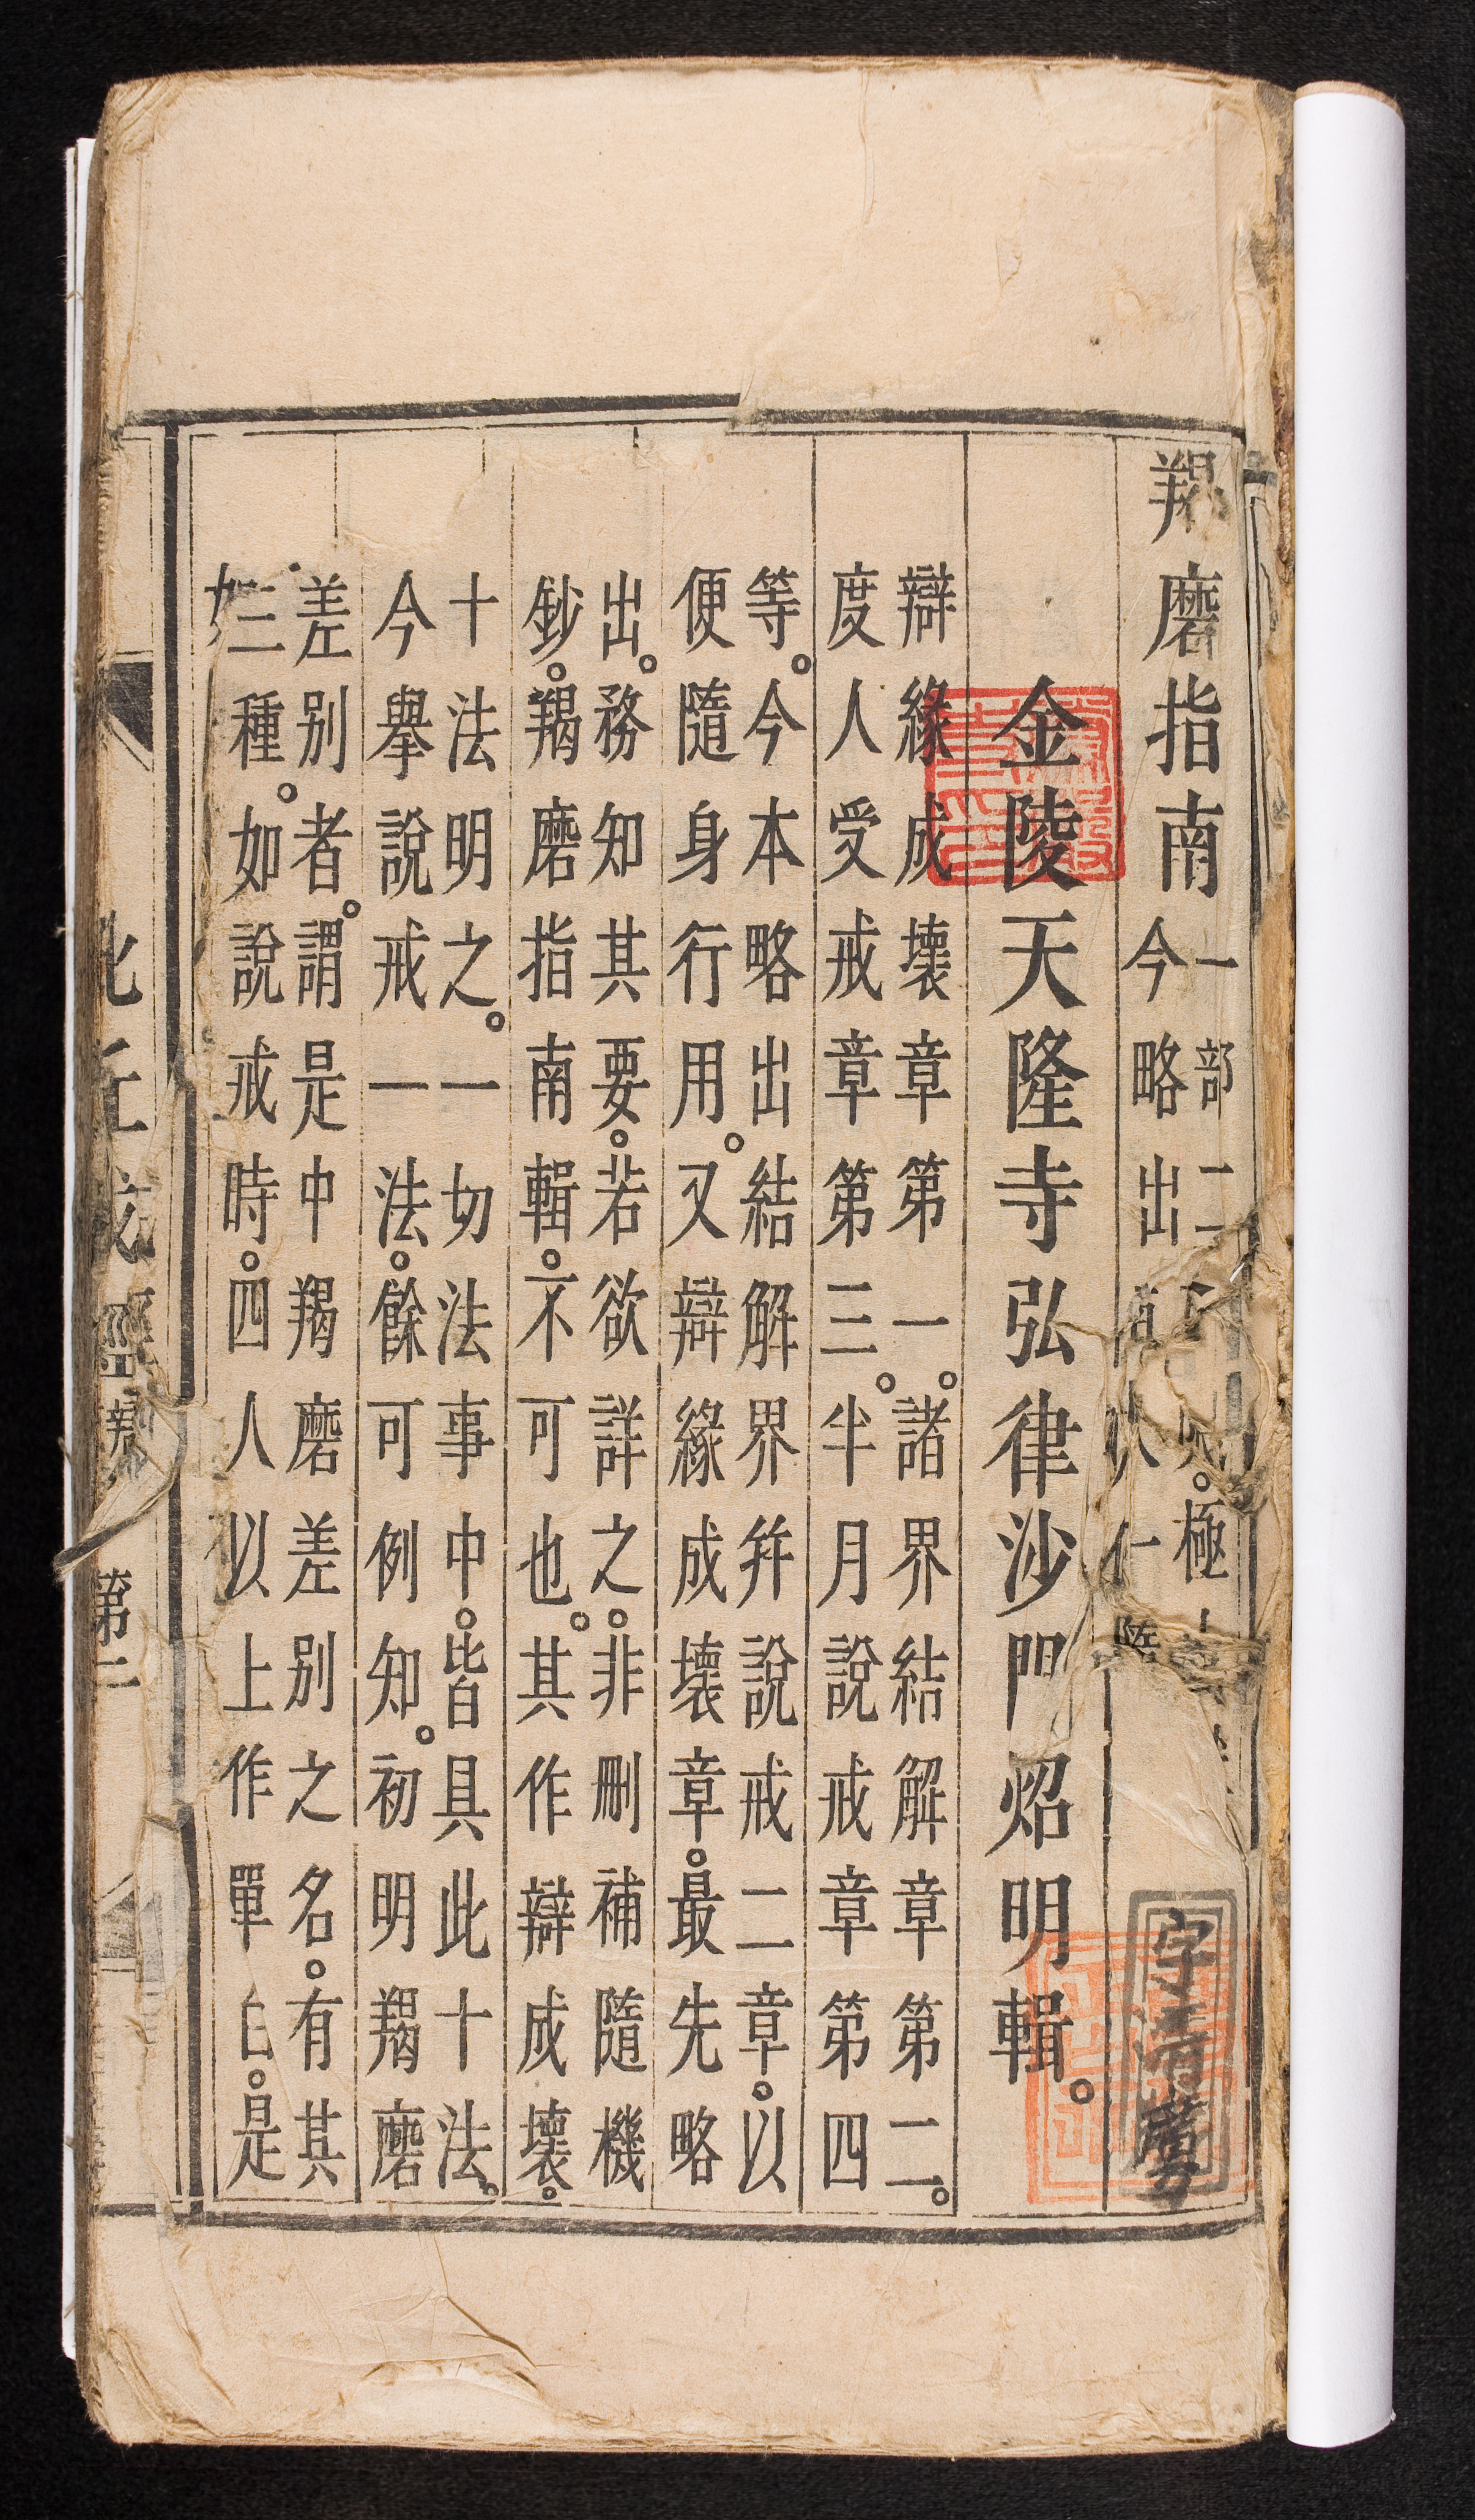 羯磨指南
一部二
極
今略出
金陵天隆寺弘律沙門炤明輯。
辯緣成壞章第一。諸界結解章第二。
度人受戒章第三。半月說戒章第四
等。今本略出結解界并說戒二章。以
便隨身行用。又辯緣成壞章。最先略
出。務知其要。若欲詳之。非刪補隨機
鈔。羯磨指南輯。不可也。其作辯成壞。
十法明之。一切法事中。皆具此十法。
今舉說戒一法。餘可例知。初明羯磨
差別者。謂是中羯磨差別之名。有其
三種。如說戒時。四人以上作單白。是
第二